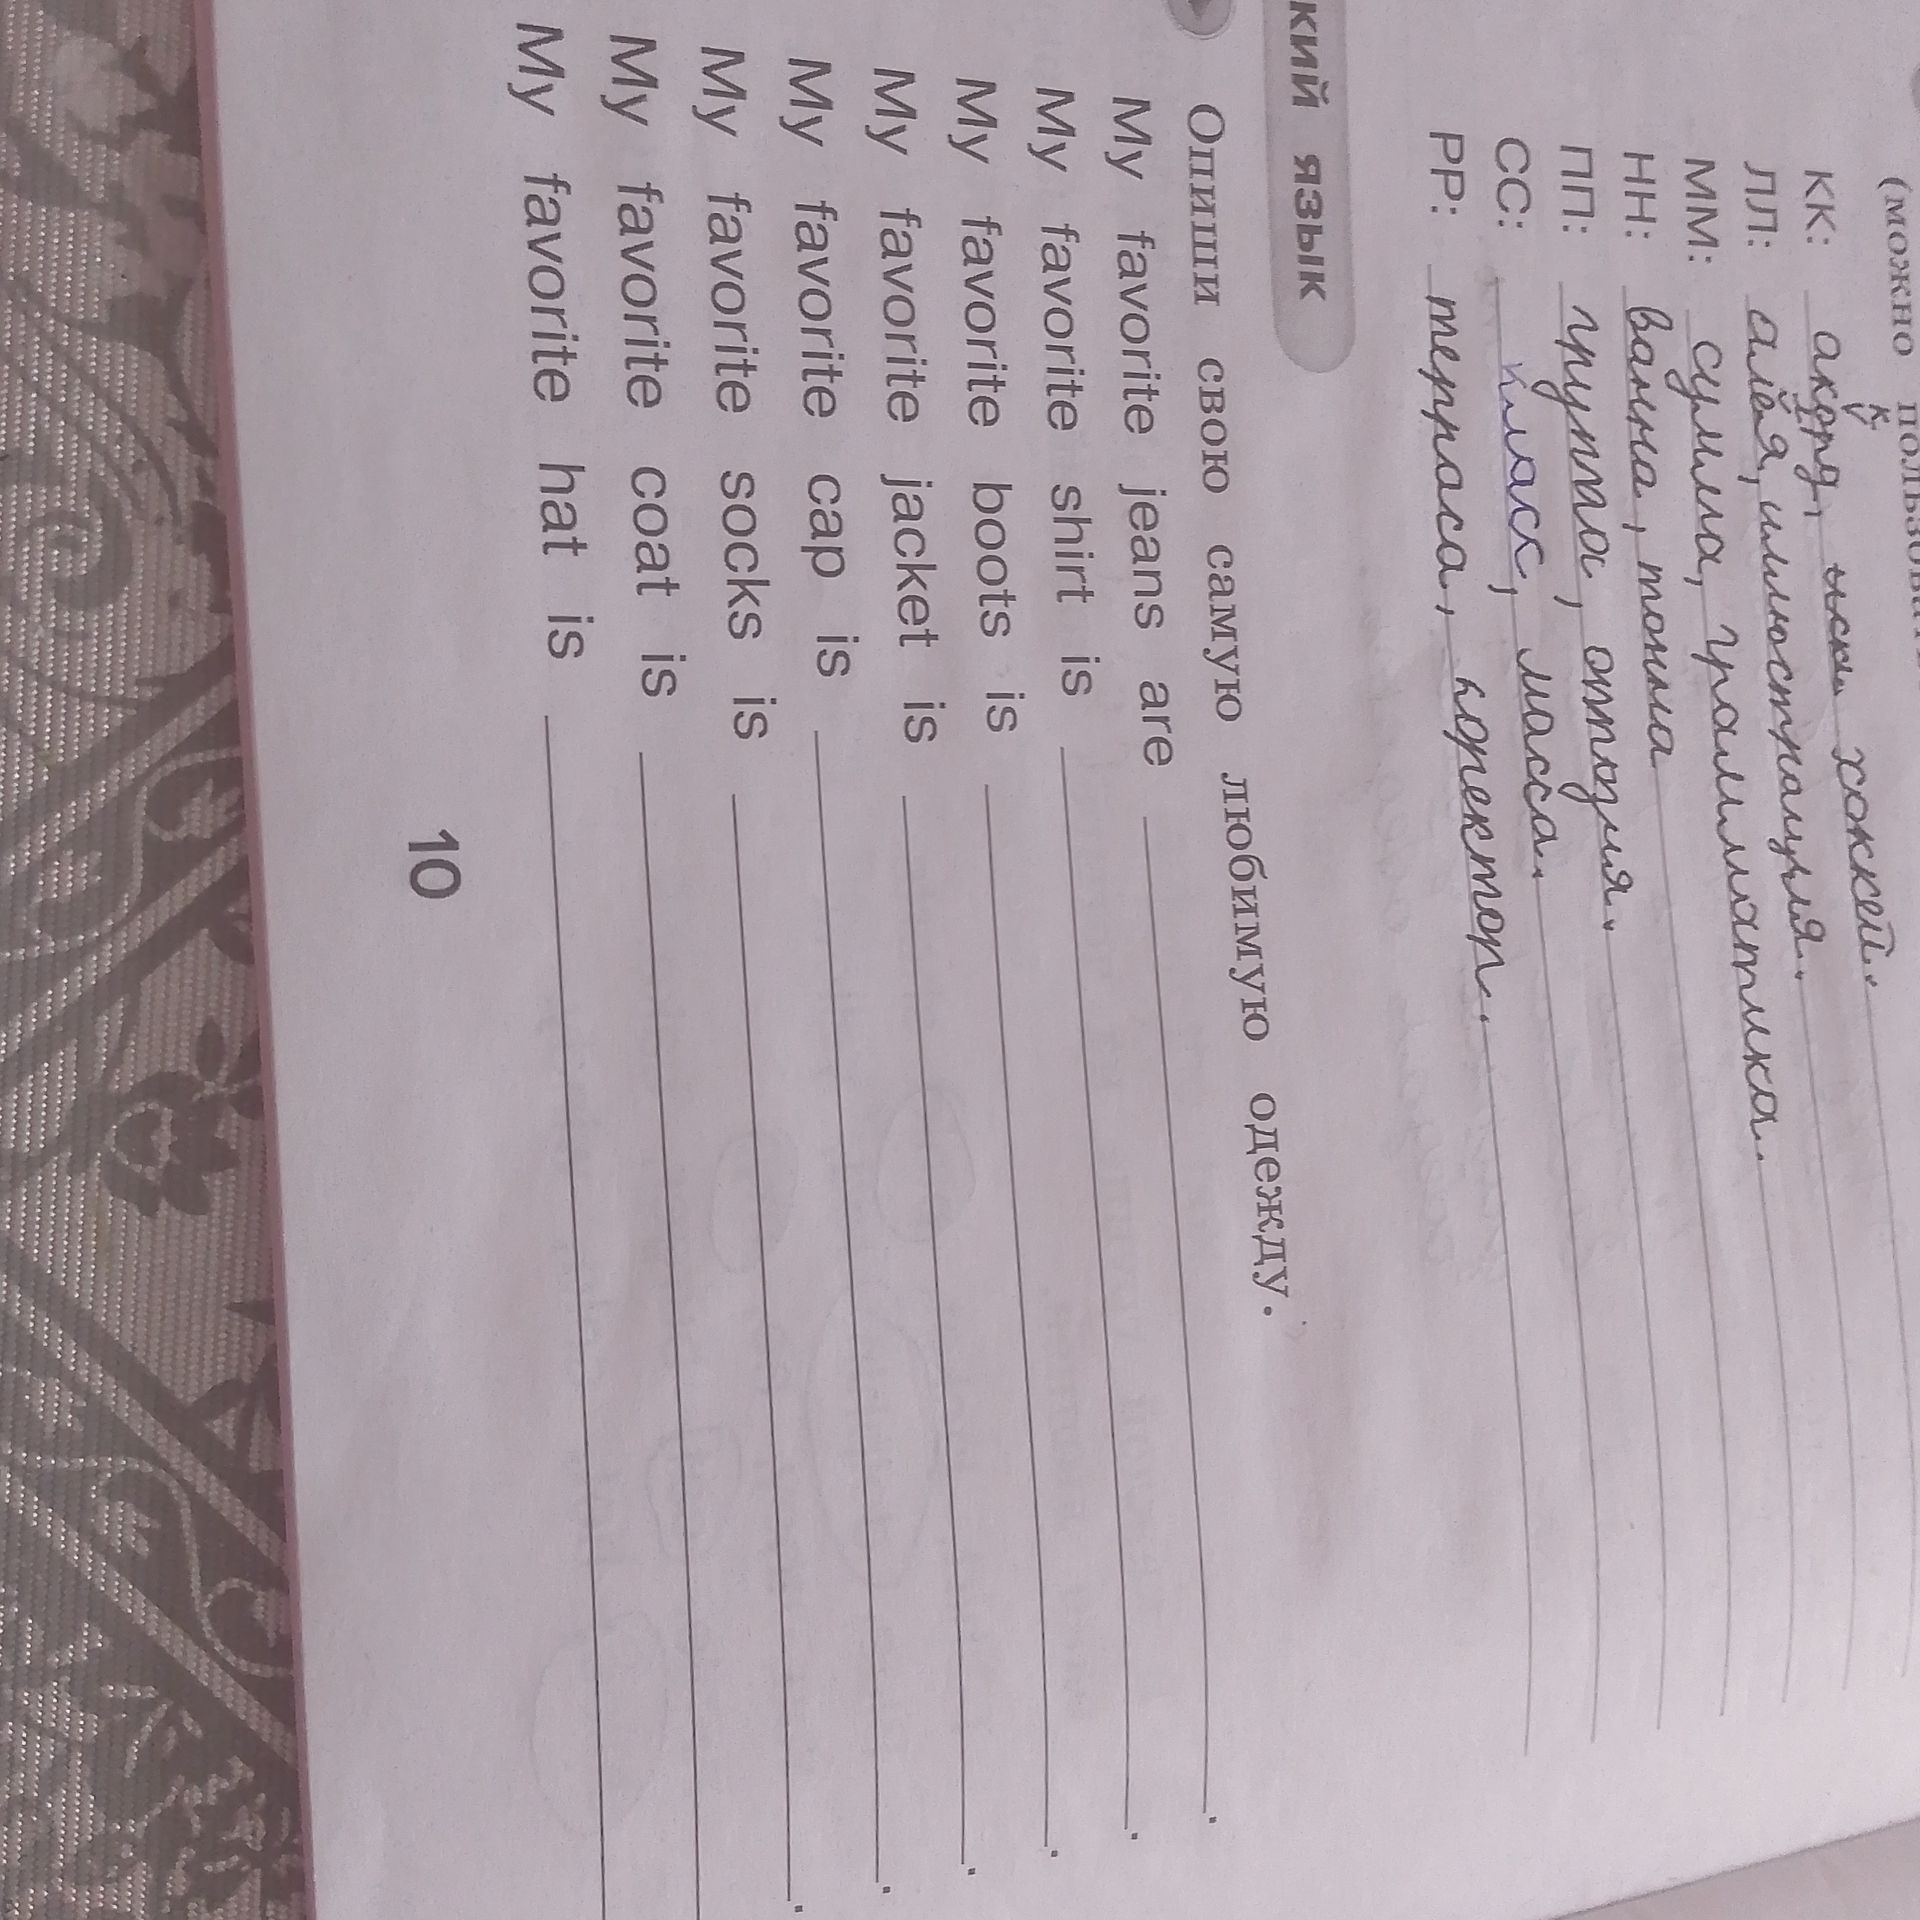 (можно
КК: акорд, хоккей.
ЛЛ: алея, иллюстрация.
ММ: сумма, грамматика.
НН: ванна, тонна
ПП: группа, оппозия.
СС: класс, масса.
РР: терраса, коректор.
кий язык
Опиши свою самую любимую одежду.
My favorite jeans are .
My favorite shirt is .
My favorite boots is .
My favorite jacket is .
My favorite cap is .
My favorite socks is .
My favorite coat is
My favorite hat is
10